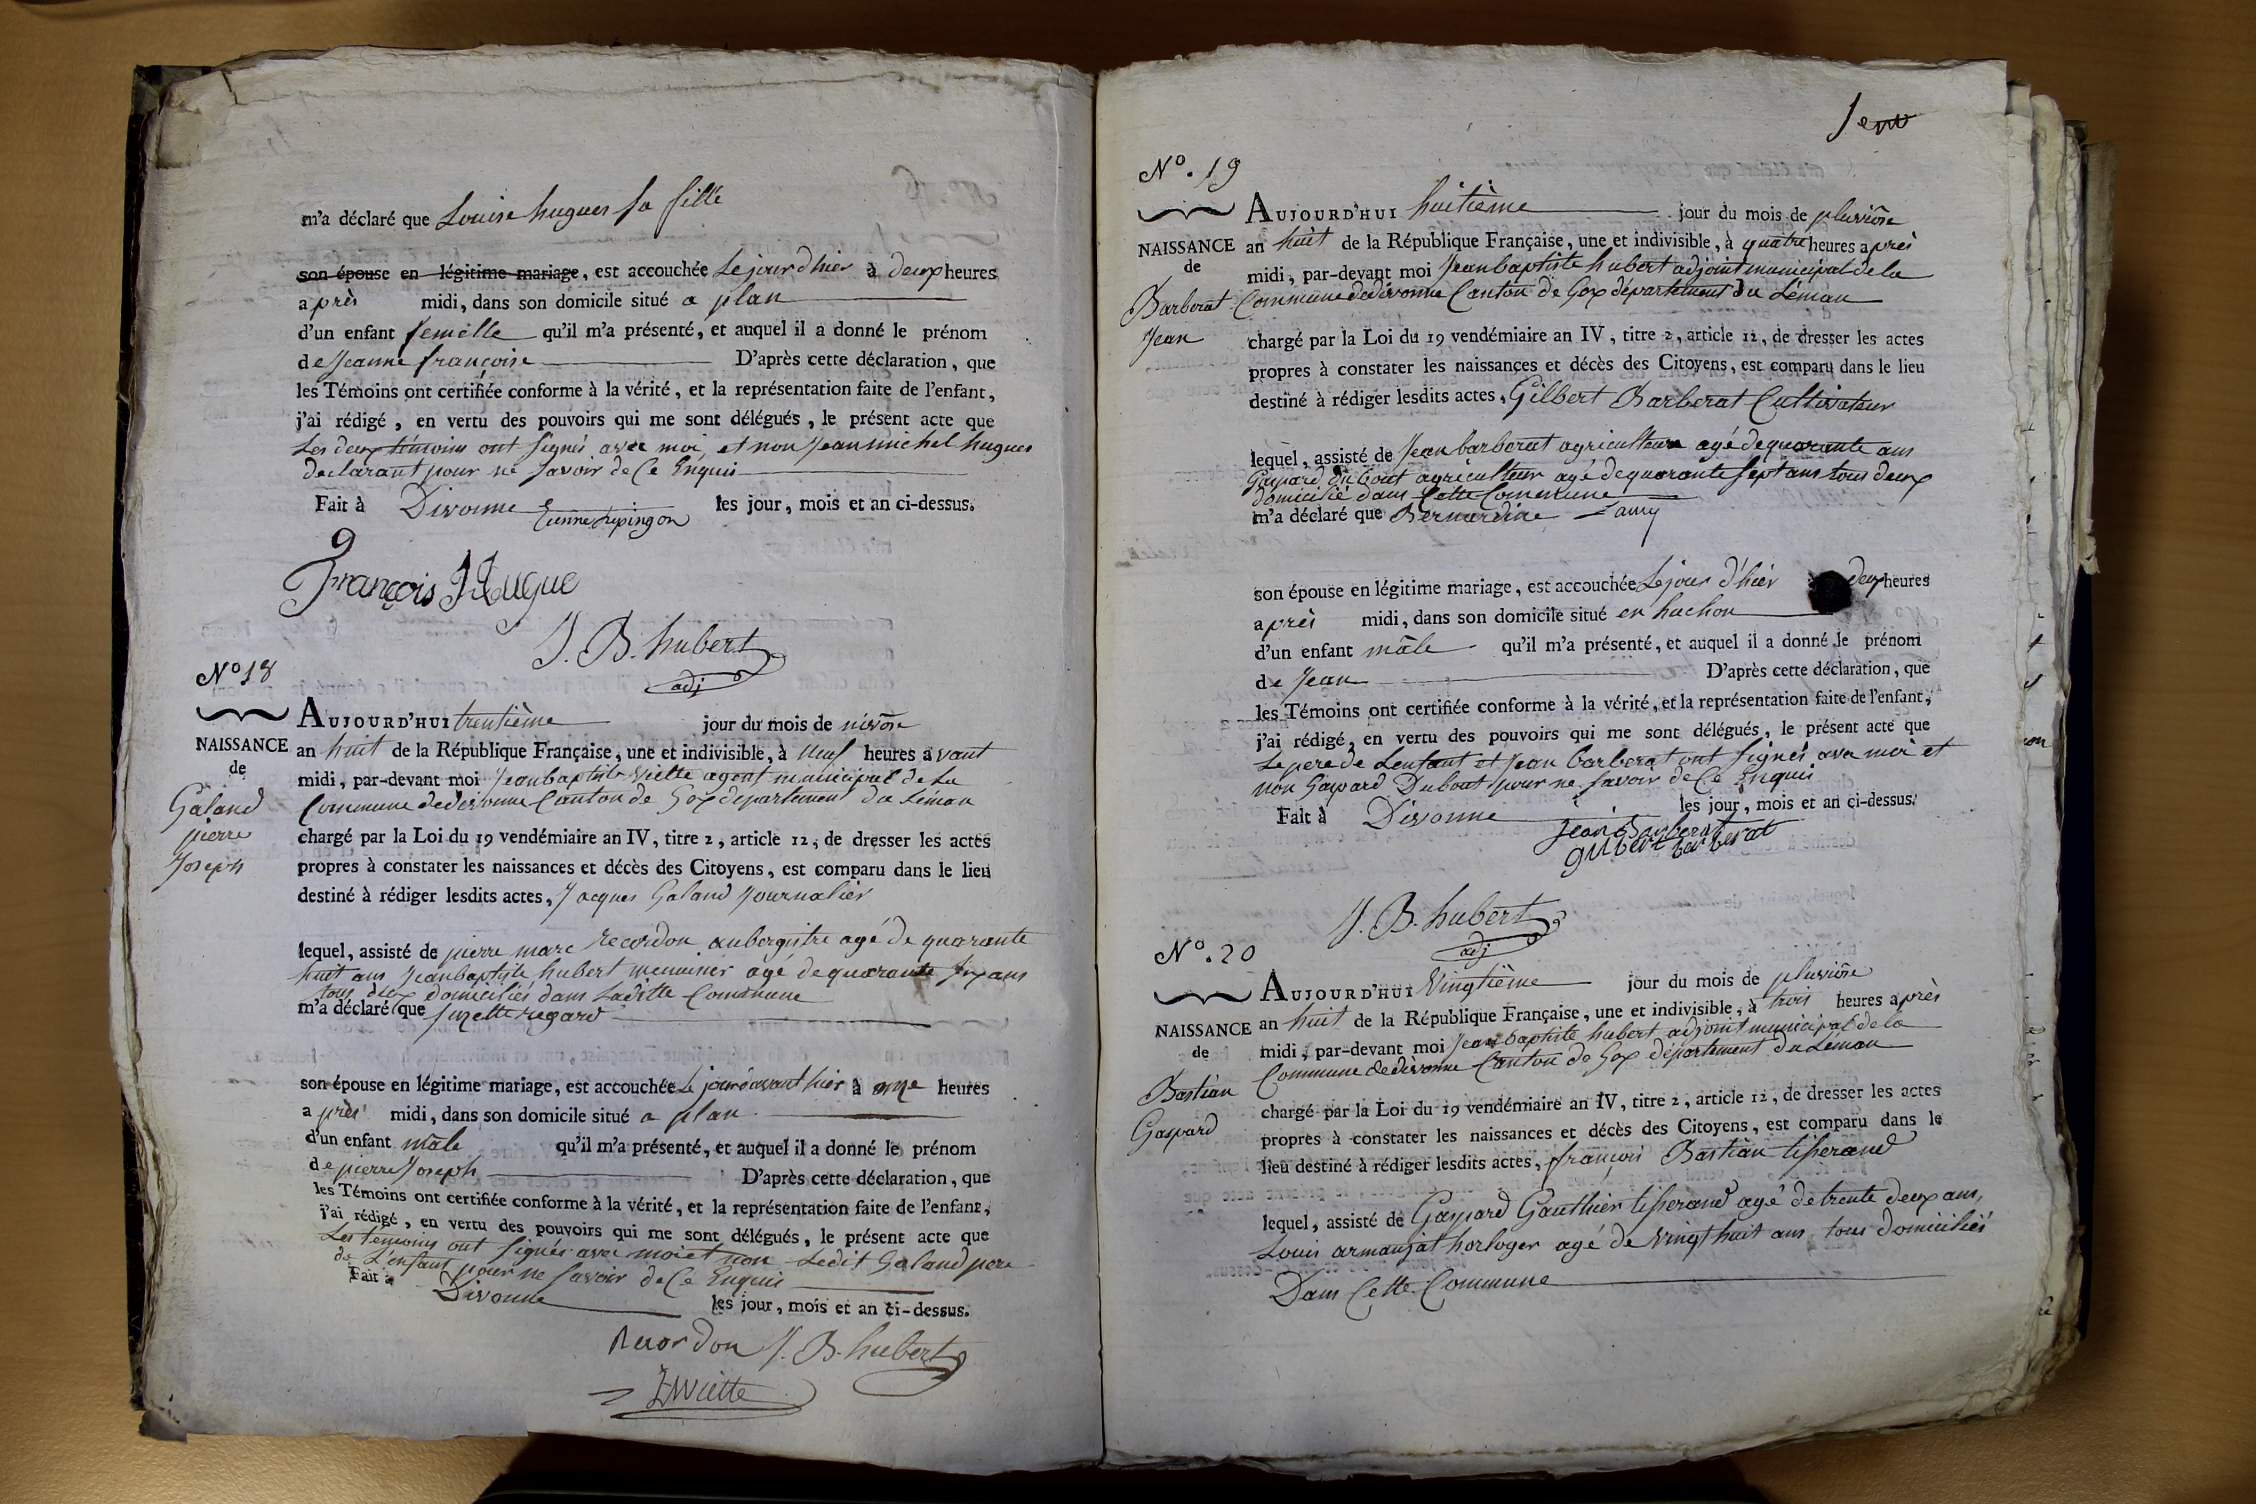 m'a déclaré que Louise hugues sa fille
son épouse en légitime mariage, est accouchée Le jour d'hier à deux heures
après midi, dans son domicile situé a plan
d'un enfant femelle qu'il m'a présenté, et auquel il a donné le prénom
de Jeanne françoise D'après cette déclaration, que
les Témoins ont certifiée conforme à la vérité, et la représentation faite de l'enfant,
j'ai rédigé, en vertu des pouvoirs qui me sont délégués, le présent acte que
Les deux témoins ont signés avec moi, et non Jean michel hugues
declarant pour ne savoir de Ce Enquis
Fait à Divonne les jour, mois et an ci-dessus.
François Hugue
J. B. hubert
adj
N° 18
NAISSANCE
de
Galand
pierre
Joseph
AUJOURD'HUI trentième jour du mois de nivôse
an huit de la République Française, une et indivisible, à neuf heures avant
midi, par-devant moi Jean baptiste Viette agent municipal de La
Commune de divonne Canton de Gex departement du Léman
chargé par la Loi du 19 vendémiaire an IV, titre 2, article 12, de dresser les actes
propres à constater les naissances et décès des Citoyens, est comparu dans le lieu
destiné à rédiger lesdits actes, Jacques Galand Journalier
lequel, assisté de pierre marc recordon aubergistre agé de quarante
huit ans Jean baptiste hubert menuisier agé de quarante six ans
tous deux domiciliés dans Laditte Commune
m'a déclaré que suzette regard
son épouse en légitime mariage, est accouchée Le jour avant hier à onze heures
après midi, dans son domicile situé a plan
d'un enfant mâle qu'il m'a présenté, et auquel il a donné le prénom
de pierre Joseph D'après cette déclaration, que
les Témoins ont certifiée conforme à la vérité, et la représentation faite de l'enfant,
j'ai rédigé, en vertu des pouvoirs qui me sont délégués, le présent acte que
Les témoins ont signés avec moi et non Ledit Galand pere
de L'enfant pour ne savoir de Ce Enquis
Fait à Divonne les jour, mois et an ci-dessus.
Recordon J. B. hubert
Viette
N°. 19
NAISSANCE
de
Barberat
Jean
AUJOURD'HUI huitième jour du mois de pluviôse
an huit de la République Française, une et indivisible, à quatre heures après
midi, par-devant moi Jean baptiste hubert adjoint municipal de la
Commune de divonne Canton de Gex département du Léman
chargé par la Loi du 19 vendémiaire an IV, titre 2, article 12, de dresser les actes
propres à constater les naissances et décès des Citoyens, est comparu dans le lieu
destiné à rédiger lesdits actes, Gilbert Barberat Cultivateur
lequel, assisté de Jean barberat agriculteur agé de quarante ans
Gaspard Dubout agriculteur agé de quarante sept ans tous deux
domicilié dans Cette Commune
m'a déclaré que Bernardine Lamy
son épouse en légitime mariage, est accouchée Le jour d'hier deux heures
après midi, dans son domicile situé en huchon
d'un enfant mâle qu'il m'a présenté, et auquel il a donné le prénom
de Jean D'après cette déclaration, que
les Témoins ont certifiée conforme à la vérité, et la représentation faite de l'enfant,
j'ai rédigé, en vertu des pouvoirs qui me sont délégués, le présent acte que
Le pere de Lenfant et Jean barberat ont signés avec moi et
non Gaspard Dubout pour ne savoir de Ce Enquis
Fait à Divonne les jour, mois et an ci-dessus.
Jean Barberat
gilbert barberat
J. B. hubert
adj
N°. 20
NAISSANCE
de
Bastian
Gaspard
AUJOURD'HUI Vingtième jour du mois de pluviôse
an huit de la République Française, une et indivisible, à trois heures après
midi, par-devant moi Jean baptiste hubert adjoint municipal de la
Commune de divonne Canton de Gex département du Léman
chargé par la Loi du 19 vendémiaire an IV, titre 2, article 12, de dresser les actes
propres à constater les naissances et décès des Citoyens, est comparu dans le
lieu destiné à rédiger lesdits actes, françois Bastian tisserand
lequel, assisté de Gaspard Gauthier tisserand agé de trente deux ans,
Louis armanjat horloger agé de vingt huit ans tous domiciliés
Dans Cette Commune